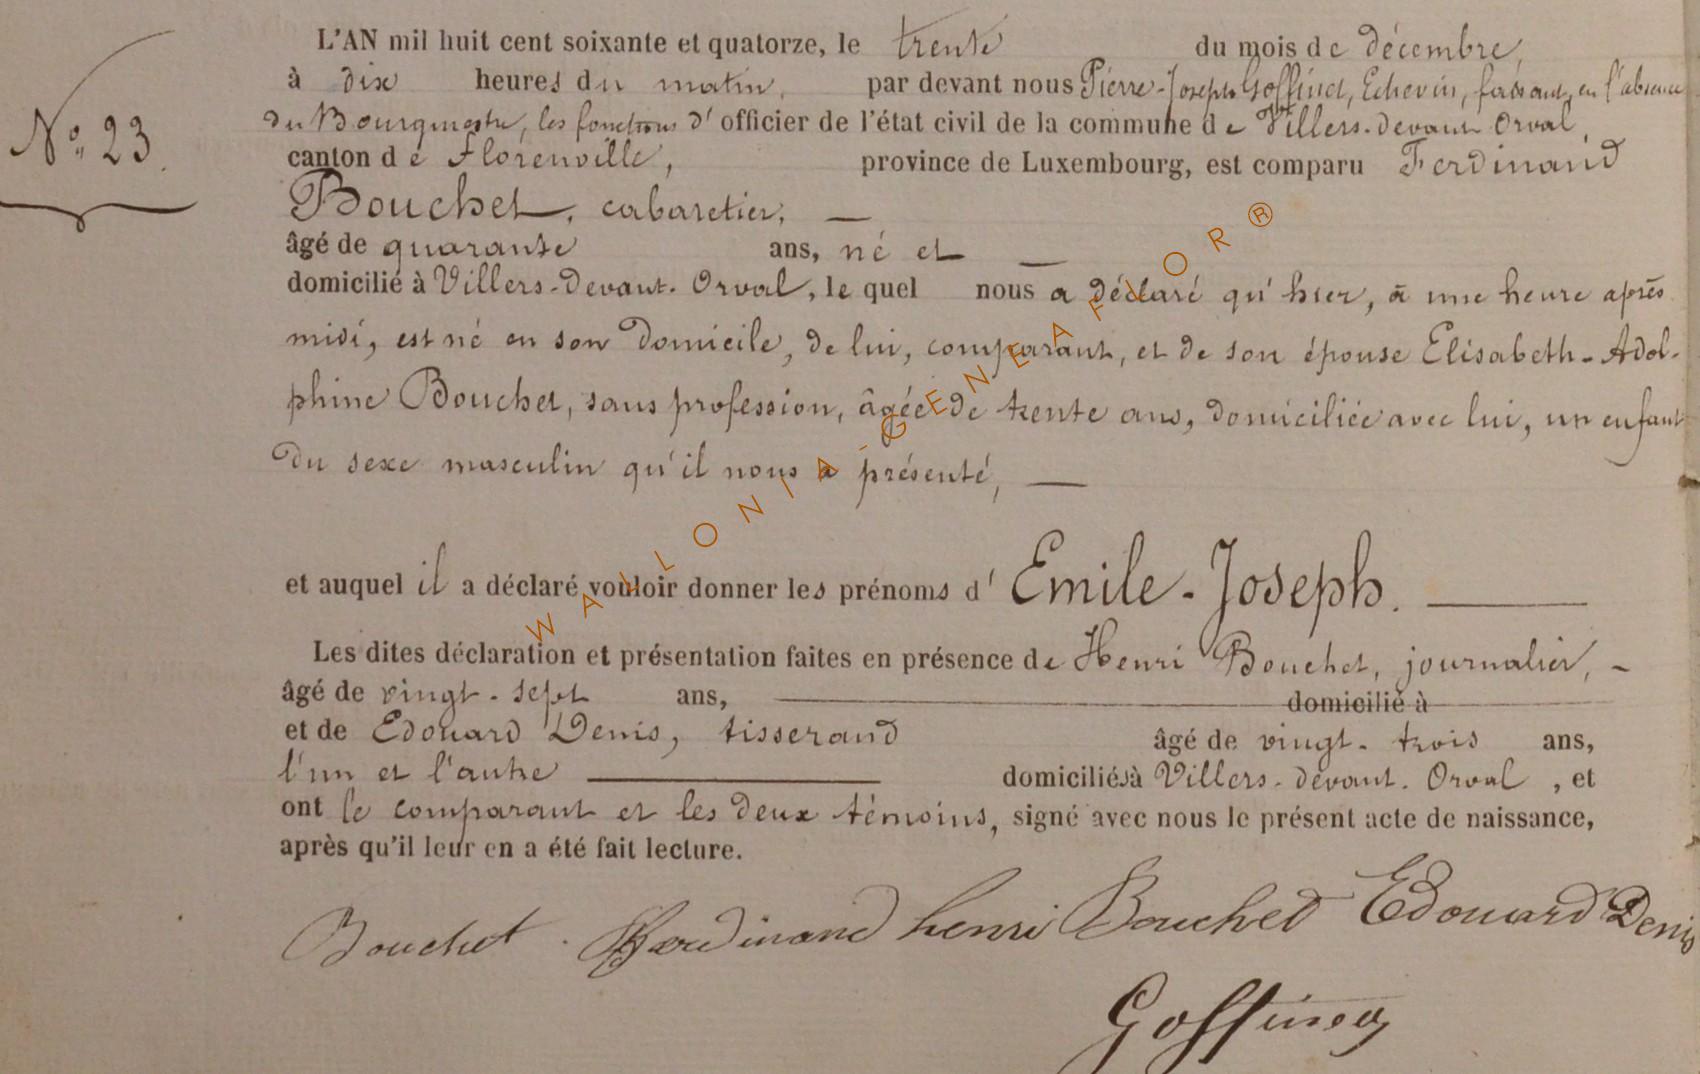 L'AN mil huit cent soixante et quatorze, le trente du mois de décembre,
à dix heures du matin, par devant nous Pierre-Joseph Goffinet, Echevin, faisant, en l'absence
du Bourgmestre, les fonctions d'officier de l'état civil de la commune de Villers-devant-Orval,
N° 23.
canton de Florenville, province de Luxembourg, est comparu Ferdinand
Bouchet, cabaretier, —
âgé de quarante ans, né et —
domicilié à Villers-devant-Orval, lequel nous a déclaré qu'hier, à une heure après
midi, est né en son domicile, de lui, comparant, et de son épouse Elisabeth-Adol-
phine Bouchet, sans profession, âgée de trente ans, domiciliée avec lui, un enfant
du sexe masculin qu'il nous a présenté, —
et auquel il a déclaré vouloir donner les prénoms d'Emile-Joseph. —
Les dites déclaration et présentation faites en présence de Henri Bouchet, journalier, -
âgé de vingt-sept ans, — domicilié à —
et de Edouard Denis, tisserand âgé de vingt-trois ans,
l'un et l'autre — domiciliés à Villers-devant-Orval, et
ont le comparant et les deux témoins, signé avec nous le présent acte de naissance,
après qu'il leur en a été fait lecture.
Bouchet . Ferdinand henri Bouchet Edouard Denis
Goffinet
WALLONIA-GENEAFLOR®